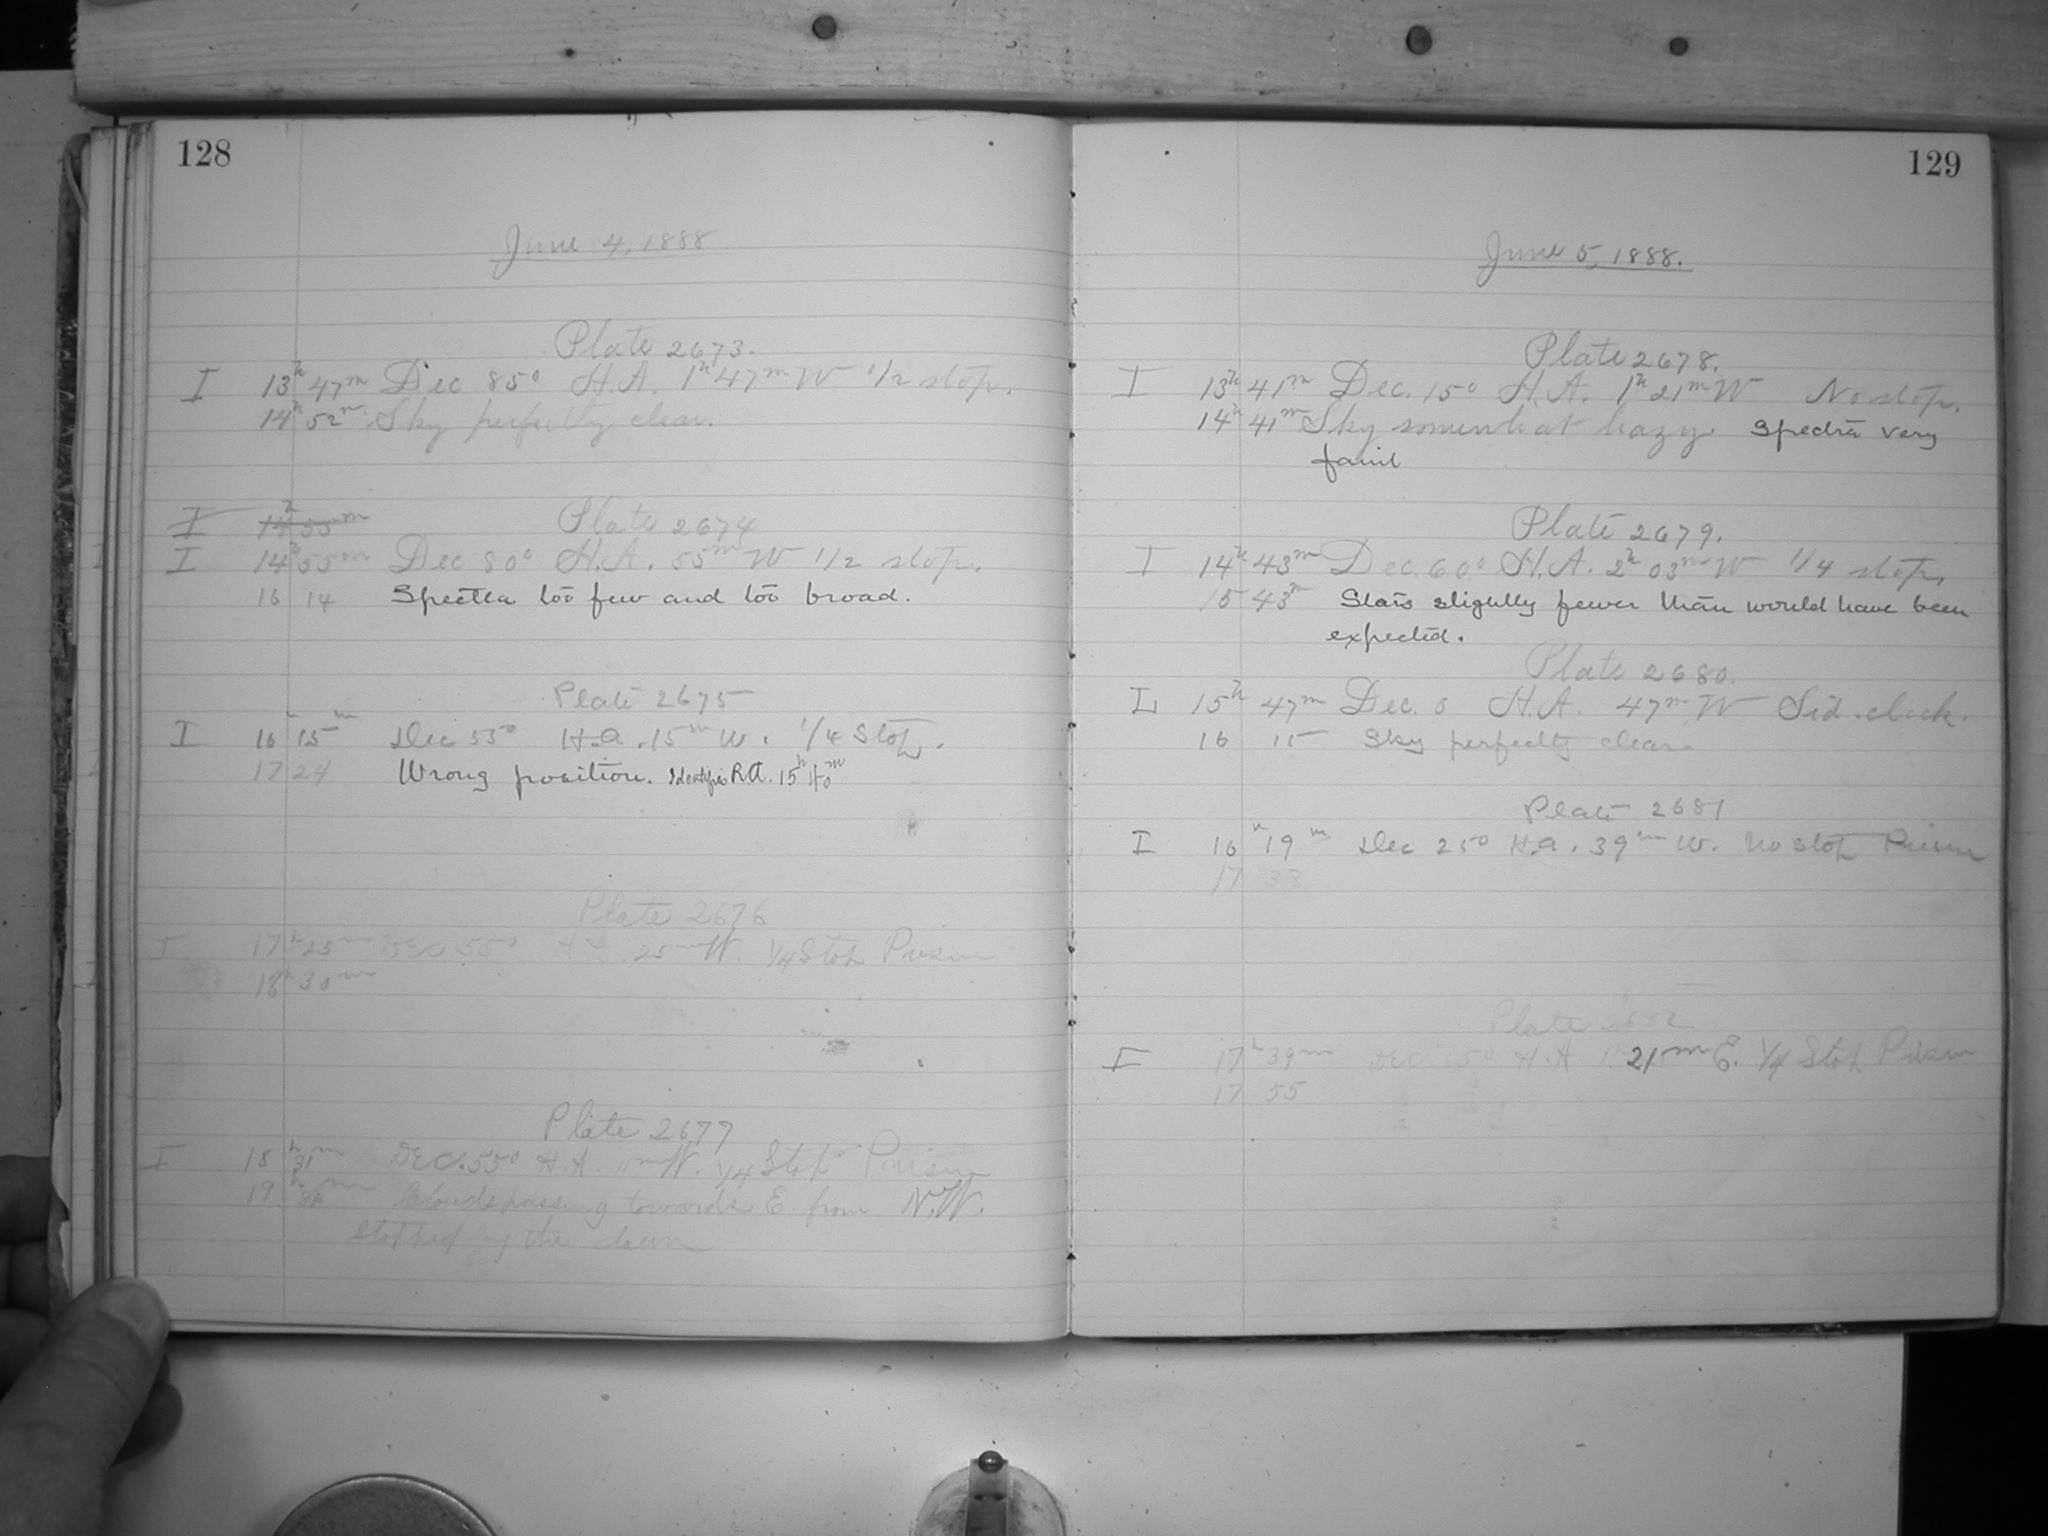 128
June 4, 1888
Plate 2673.
I 13h 47m Dec 85° H.A. 1h 47m W 1/2 stop.
14h 52m Sky perfectly clear.
I 14h 55m Plate 2674
I 14h 55m Dec 80° H.A. 55m W 1/2 stop.
16 14 Spectra too few and too broad.
Plate 2675
I 16h 15m Dec 55° H.A. 15m W. 1/4 Stop.
17 24 Wrong position. Identifies R.A. 15h 40m
Plate 2676
I 17h 25m Dec. 55° H.A. 25m W. 1/4 Stop Prism
18h 30m
Plate 2677
I 18h 31m Dec. 55° H.A. 11m W. 1/4 Stop Prism
19h m Clouds passing towards E. from N.W.
Stopped by the dawn
129
June 5, 1888.
Plate 2678.
I 13h 41m Dec. 15° H.A. 1h 21m W No stop.
14h 41m Sky somewhat hazy. Spectra very
faint
Plate 2679.
I 14h 43m Dec. 60° H.A. 2h 03m W 1/4 stop.
15 43m Stars slightly fewer than would have been
expected.
Plate 2680.
I 15h 47m Dec. 0 H.A. 47m W Sid. clock.
16 15 Sky perfectly clear.
Plate 2681
I 16h 19m Dec 25° H.A. 39m W. No stop Prism
17 38
Plate 2682
I 17h 39m Dec. 65° H.A. 1h 21m E. 1/4 Stop Prism
17 55